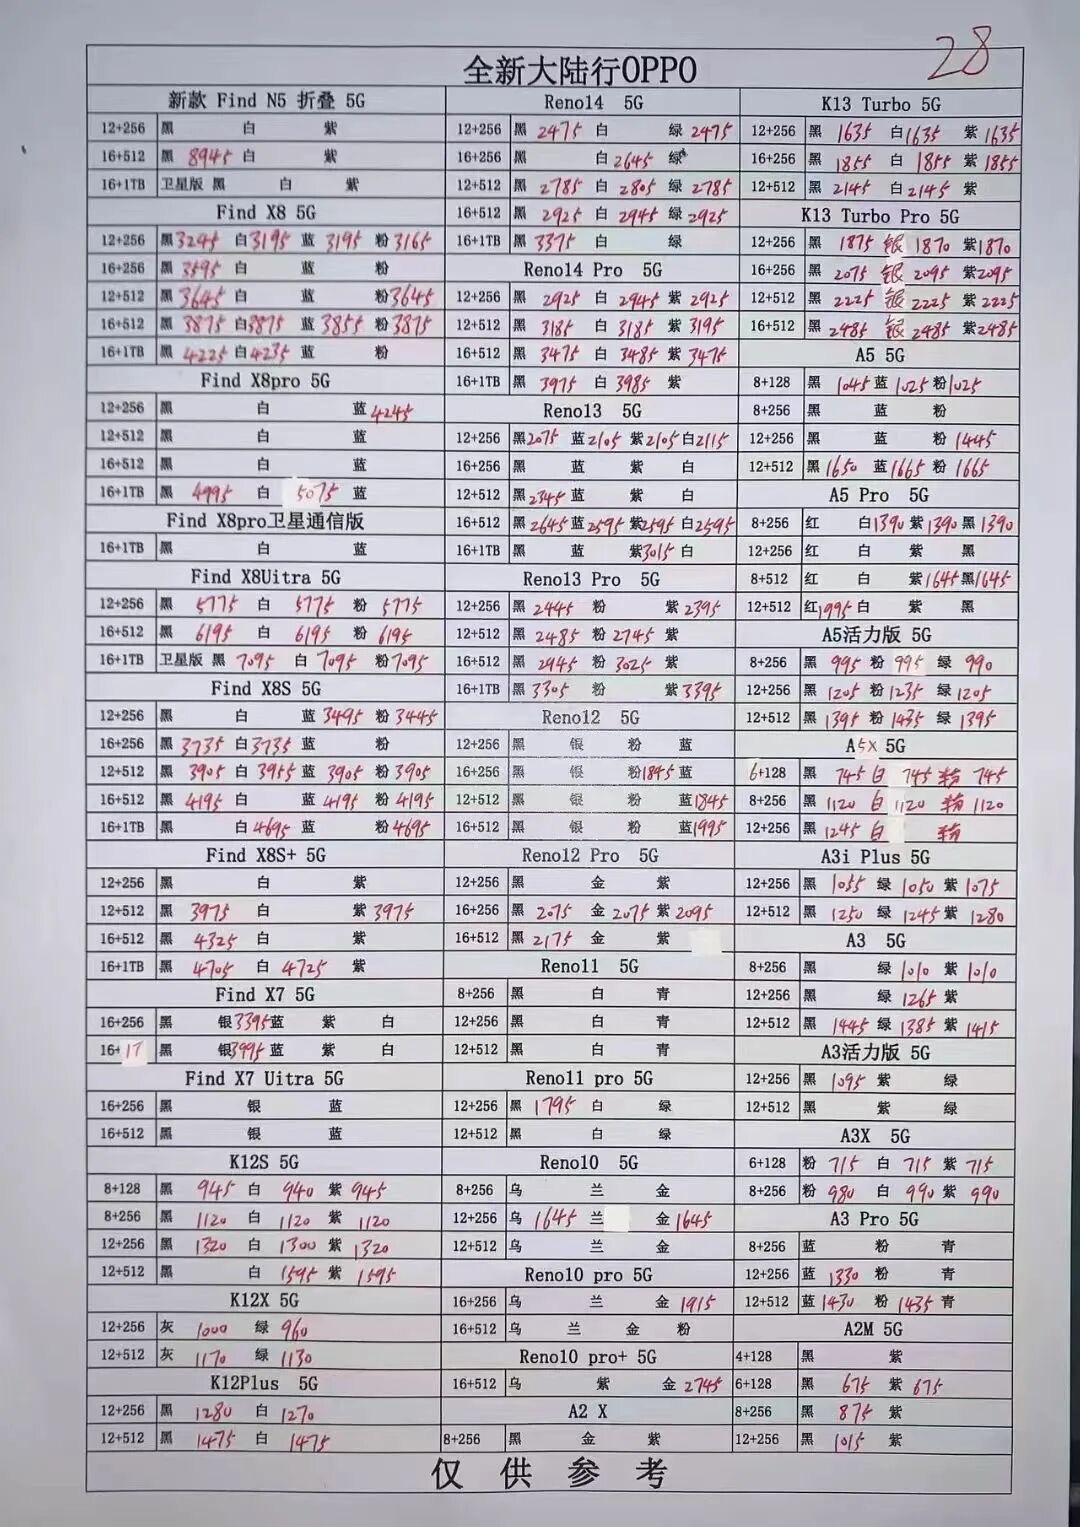 28
全新大陆行OPPO
新款 Find N5 折叠 5G
12+256 黑 白 紫
16+512 黑 8945 白 紫
16+1TB 卫星版 黑 白 紫
Find X8 5G
12+256 黑3245 白3195 蓝 3195 粉 3165
16+256 黑 3595 白 蓝 粉
12+512 黑 3645 白 蓝 粉3645
16+512 黑 3875 白3875 蓝 3855 粉 3875
16+1TB 黑 4225 白4235 蓝 粉
Find X8pro 5G
12+256 黑 白 蓝 4245
12+512 黑 白 蓝
16+512 黑 白 蓝
16+1TB 黑 4995 白 5075 蓝
Find X8pro卫星通信版
16+1TB 黑 白 蓝
Find X8Uitra 5G
12+256 黑 5775 白 5775 粉 5775
16+512 黑 6195 白 6195 粉 6195
16+1TB 卫星版 黑 7095 白 7095 粉7095
Find X8S 5G
12+256 黑 白 蓝 3495 粉 3445
16+256 黑 3735 白3735 蓝 粉
12+512 黑 3905 白 3955 蓝 3905 粉 3905
16+512 黑 4195 白 蓝 4195 粉 4195
16+1TB 黑 白4695 蓝 粉4695
Find X8S+ 5G
12+256 黑 白 紫
12+512 黑 3975 白 紫 3975
16+512 黑 4325 白 紫
16+1TB 黑 4705 白 4725 紫
Find X7 5G
16+256 黑 银3395蓝 紫 白
16+1T 黑 银3995蓝 紫 白
Find X7 Uitra 5G
16+256 黑 银 蓝
16+512 黑 银 蓝
K12S 5G
8+128 黑 945 白 940 紫 945
8+256 黑 1120 白 1120 紫 1120
12+256 黑 1320 白 1300 紫 1320
12+512 黑 白 1595 紫 1595
K12X 5G
12+256 灰 1000 绿 960
12+512 灰 1170 绿 1130
K12Plus 5G
12+256 黑 1280 白 1270
12+512 黑 1475 白 1475
Reno14 5G
12+256 黑 2475 白 绿 2475
16+256 黑 白 2645 绿
12+512 黑 2785 白 2805 绿 2785
16+512 黑 2925 白 2945 绿2925
16+1TB 黑 3375 白 绿
Reno14 Pro 5G
12+256 黑 2925 白 2945 紫 2925
12+512 黑 3185 白 3185 紫 3195
16+512 黑 3475 白 3485 紫 3475
16+1TB 黑 3975 白 3985 紫
Reno13 5G
12+256 黑2075 蓝2105 紫2105白2115
16+256 黑 蓝 紫 白
12+512 黑2345 蓝 紫 白
16+512 黑2645蓝2595紫2595 白2595
16+1TB 黑 蓝 紫3015 白
Reno13 Pro 5G
12+256 黑 2445 粉 紫 2395
12+512 黑 2485 粉 2745 紫
16+512 黑 2945 粉 3025 紫
16+1TB 黑 3305 粉 紫 3395
Reno12 5G
12+256 黑 银 粉 蓝
16+256 黑 银 粉1845 蓝
12+512 黑 银 粉 蓝1845
16+512 黑 银 粉 蓝1995
Reno12 Pro 5G
12+256 黑 金 紫
16+256 黑 2075 金 2075 紫 2095
16+512 黑 2175 金 紫
Reno11 5G
8+256 黑 白 青
12+256 黑 白 青
12+512 黑 白 青
Reno11 pro 5G
12+256 黑 1795 白 绿
12+512 黑 白 绿
Reno10 5G
8+256 乌 兰 金
12+256 乌 1645 兰 金1645
12+512 乌 兰 金
Reno10 pro 5G
16+256 乌 兰 金 1915
16+512 乌 兰 金 粉
Reno10 pro+ 5G
16+512 乌 紫 金 2745
A2 X
8+256 黑 金 紫
K13 Turbo 5G
12+256 黑 1635 白1635 紫 1635
16+256 黑 1855 白 1855 紫 1855
12+512 黑 2145 白2145 紫
K13 Turbo Pro 5G
12+256 黑 1875 银 1870 紫1870
16+256 黑 2075 银 2095 紫2095
12+512 黑 2225 银 2225 紫 2225
16+512 黑 2485 银 2485 紫2485
A5 5G
8+128 黑 1045 蓝 1025 粉1025
8+256 黑 蓝 粉
12+256 黑 蓝 粉 1445
12+512 黑 1650 蓝 1665 粉 1665
A5 Pro 5G
8+256 红 白1390 紫 1390 黑 1390
12+256 红 白 紫 黑
8+512 红 白 紫1645黑1645
12+512 红1995白 紫 黑
A5活力版 5G
8+256 黑 995 粉 995 绿 990
12+256 黑 1205 粉1235 绿1205
12+512 黑 1395 粉 1435 绿 1395
A5X 5G
6+128 黑 745 白 745 粉 745
8+256 黑 1120 白 1120 粉 1120
12+256 黑 1245 白 粉
A3i Plus 5G
12+256 黑 1055 绿 1050 紫1075
12+512 黑 1250 绿 1245 紫 1280
A3 5G
8+256 黑 绿 1010 紫 1010
12+256 黑 绿 1265 紫
12+512 黑 1445 绿 1385 紫 1415
A3活力版 5G
12+256 黑 1095 紫 绿
12+512 黑 紫 绿
A3X 5G
6+128 粉 715 白 715 紫 715
8+256 粉 980 白 990 紫 990
A3 Pro 5G
8+256 蓝 粉 青
12+256 蓝 1330 粉 青
12+512 蓝 1430 粉 1435 青
A2M 5G
4+128 黑 紫
6+128 黑 675 紫 675
8+256 黑 875 紫
12+256 黑 1015 紫
仅供参考